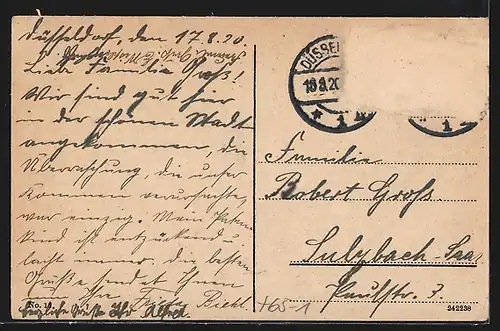 Düsseldorf, den 17.8.20.
Liebe Familie Groß!
Wir sind gut hier
in der schönen Stadt
angekommen, die
Überraschung, die unser
Kommen verursachte,
war einzig. Mein Paten
kind ist entzückend u.
lacht immer. die besten
Grüße sendet Ihnen
Riehl.
herzliche Grüße Ihr
No. 10.
DÜSSEL
18.8.20
* 1
1
Familie
Robert Gross.
Sulzbach-Saar
Hauptstr. 3
+65-1
242238